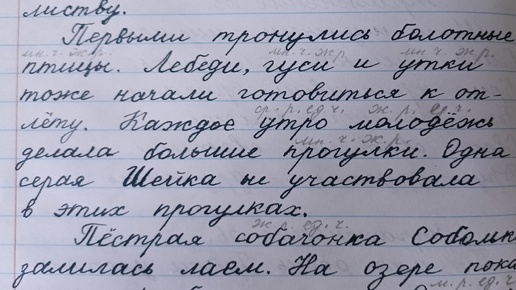 листву.
Первыми тронулись болотные
мн. ч. ж. р. мн. ч. ж. р. мн. ч. ж. р.
птицы. Лебеди, гуси и утки
тоже начали готовиться к от-
ср. р. ед. ч. ж. р. ед. ч.
лёту. Каждое утро молодёжь
мн. ч. ж. р.
делала большие прогулки. Одна
серая Шейка не участвовала
в этих прогулках.
ж. ед. ч.
Пёстрая собачонка
залилась лаем. На озере
м. р. ед. ч.